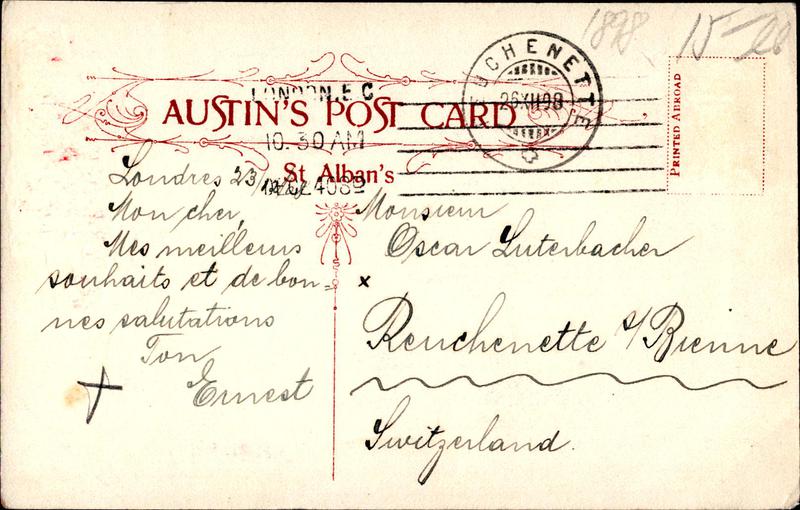 1898
15 –
REUCHENETTE
26 XII 08
LONDON. E.C
AUSTIN'S POST CARD
10. 30 AM
St Alban's
PRINTED ABROAD
Londres 23/12/08
Mon cher,
Mes meilleurs
souhaits et de bon=
nes salutations
Ton
Ernest
Monsieur
Oscar Luterbacher
x
Reuchenette s/Bienne
Switzerland.